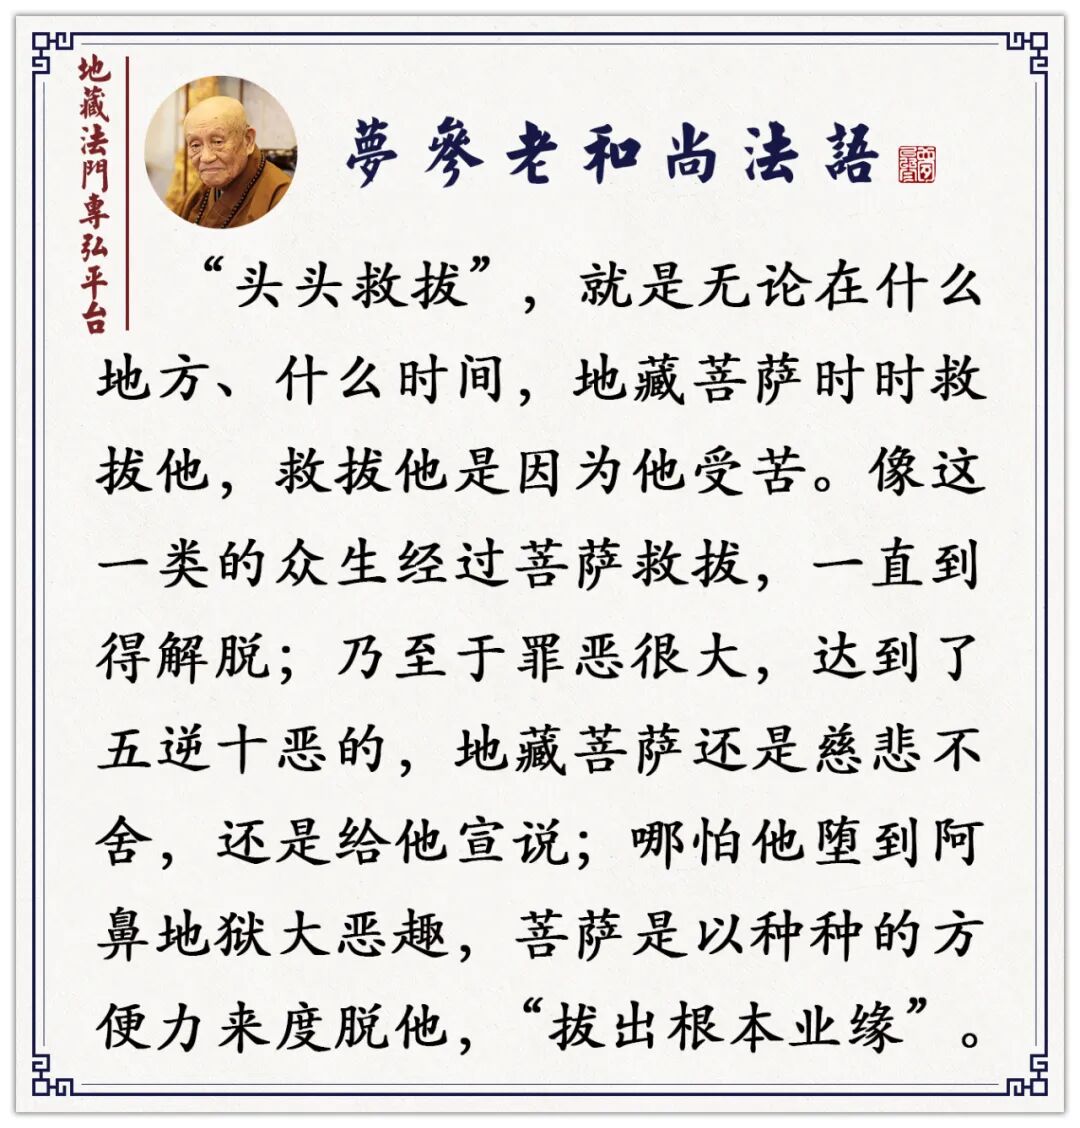 地藏法門專弘平台
夢參老和尚法語
“头头救拔”，就是无论在什么
地方、什么时间，地藏菩萨时时救
拔他，救拔他是因为他受苦。像这
一类的众生经过菩萨救拔，一直到
得解脱；乃至于罪恶很大，达到了
五逆十恶的，地藏菩萨还是慈悲不
舍，还是给他宣说；哪怕他堕到阿
鼻地狱大恶趣，菩萨是以种种的方
便力来度脱他，“拔出根本业缘”。